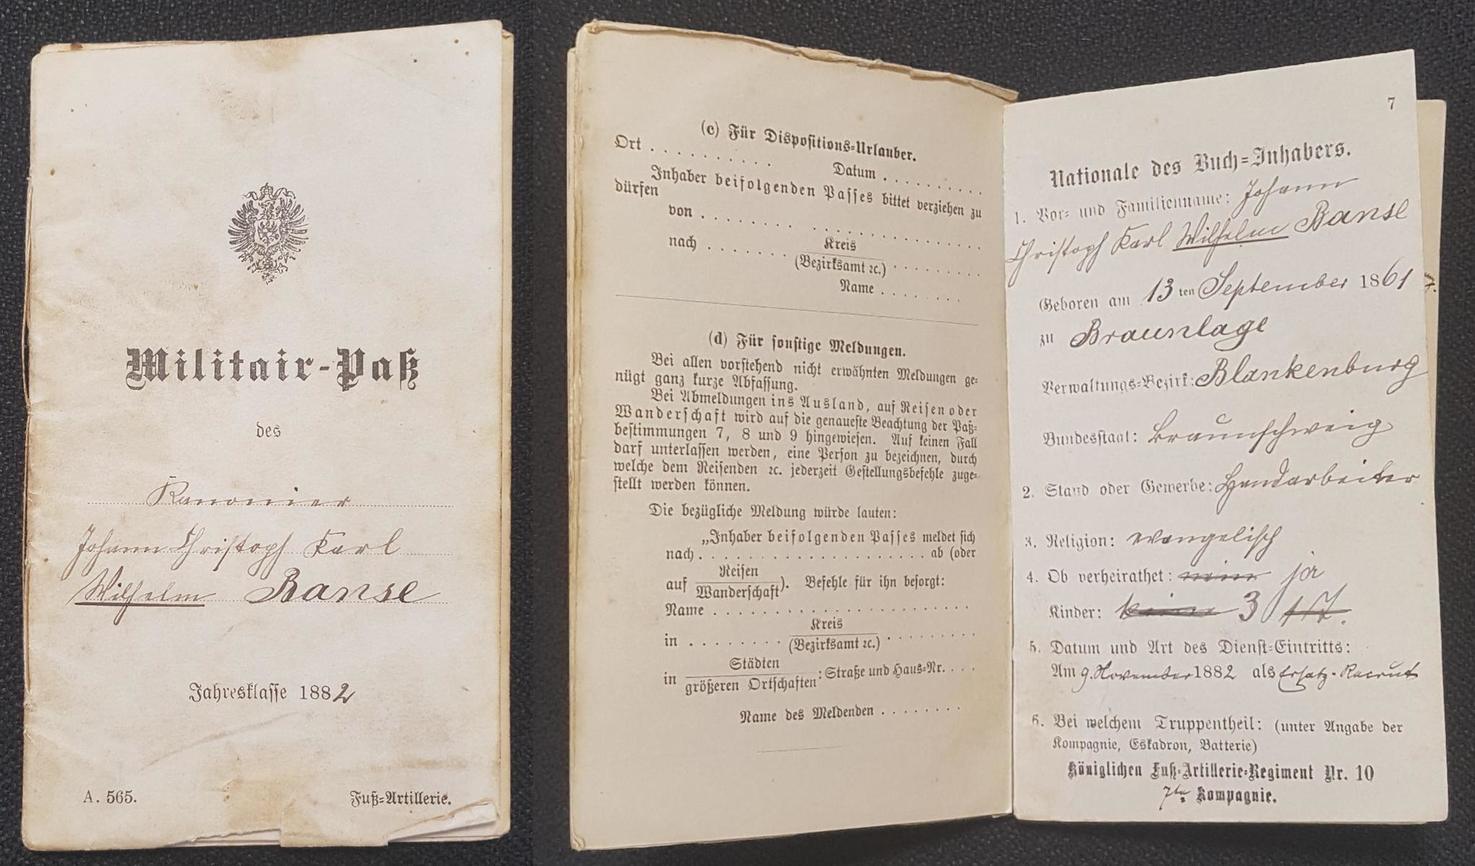 Militair-Paß
des
Kanonier
Johann Christoph Karl
Wilhelm Banse
Jahresklasse 1882
A. 565.
Fuß-Artillerie.
(c) Für Dispositions-Urlauber.
Ort . . . . . . . . . . Datum . . . . . . . . .
Inhaber beifolgenden Passes bittet verziehen zu
dürfen
von . . . . . . . . . . . . . . . . . . . . . .
nach . . . . . . . Kreis
(Bezirksamt ꝛc.) . . . . . . . .
Name . . . . . . . .
(d) Für sonstige Meldungen.
Bei allen vorstehend nicht erwähnten Meldungen ge-
nügt ganz kurze Abfassung.
Bei Abmeldungen ins Ausland, auf Reisen oder
Wanderschaft wird auf die genaueste Beachtung der Paß-
bestimmungen 7, 8 und 9 hingewiesen. Auf keinen Fall
darf unterlassen werden, eine Person zu bezeichnen, durch
welche dem Reisenden ꝛc. jederzeit Gestellungsbefehle zuge-
stellt werden können.
Die bezügliche Meldung würde lauten:
„Inhaber beifolgenden Passes meldet sich
nach . . . . . . . . . . . . . . . . . . . . ab (oder
auf Reisen
Wanderschaft). Befehle für ihn besorgt:
Name . . . . . . . . . . . . . . . . . . . . . . . .
in . . . . . . . . Kreis
(Bezirksamt ꝛc.) . . . . . . . .
in Städten
größeren Ortschaften: Straße und Haus-Nr. . . .
Name des Meldenden . . . . . . . .
7
Nationale des Buch-Inhabers.
1. Vor- und Familienname: Johann
Christoph Karl Wilhelm Banse
Geboren am 13ten September 1861
zu Braunlage
Verwaltungs-Bezirk: Blankenburg
Bundesstaat: Braunschweig
2. Stand oder Gewerbe: Handarbeiter
3. Religion: evangelisch
4. Ob verheirathet: nein ja
Kinder: keine 3
5. Datum und Art des Dienst-Eintritts:
Am 9. November 1882 als Ersatz-Recrut
6. Bei welchem Truppentheil: (unter Angabe der
Kompagnie, Eskadron, Batterie)
Königlichen Fuß-Artillerie-Regiment Nr. 10
7te Kompagnie.